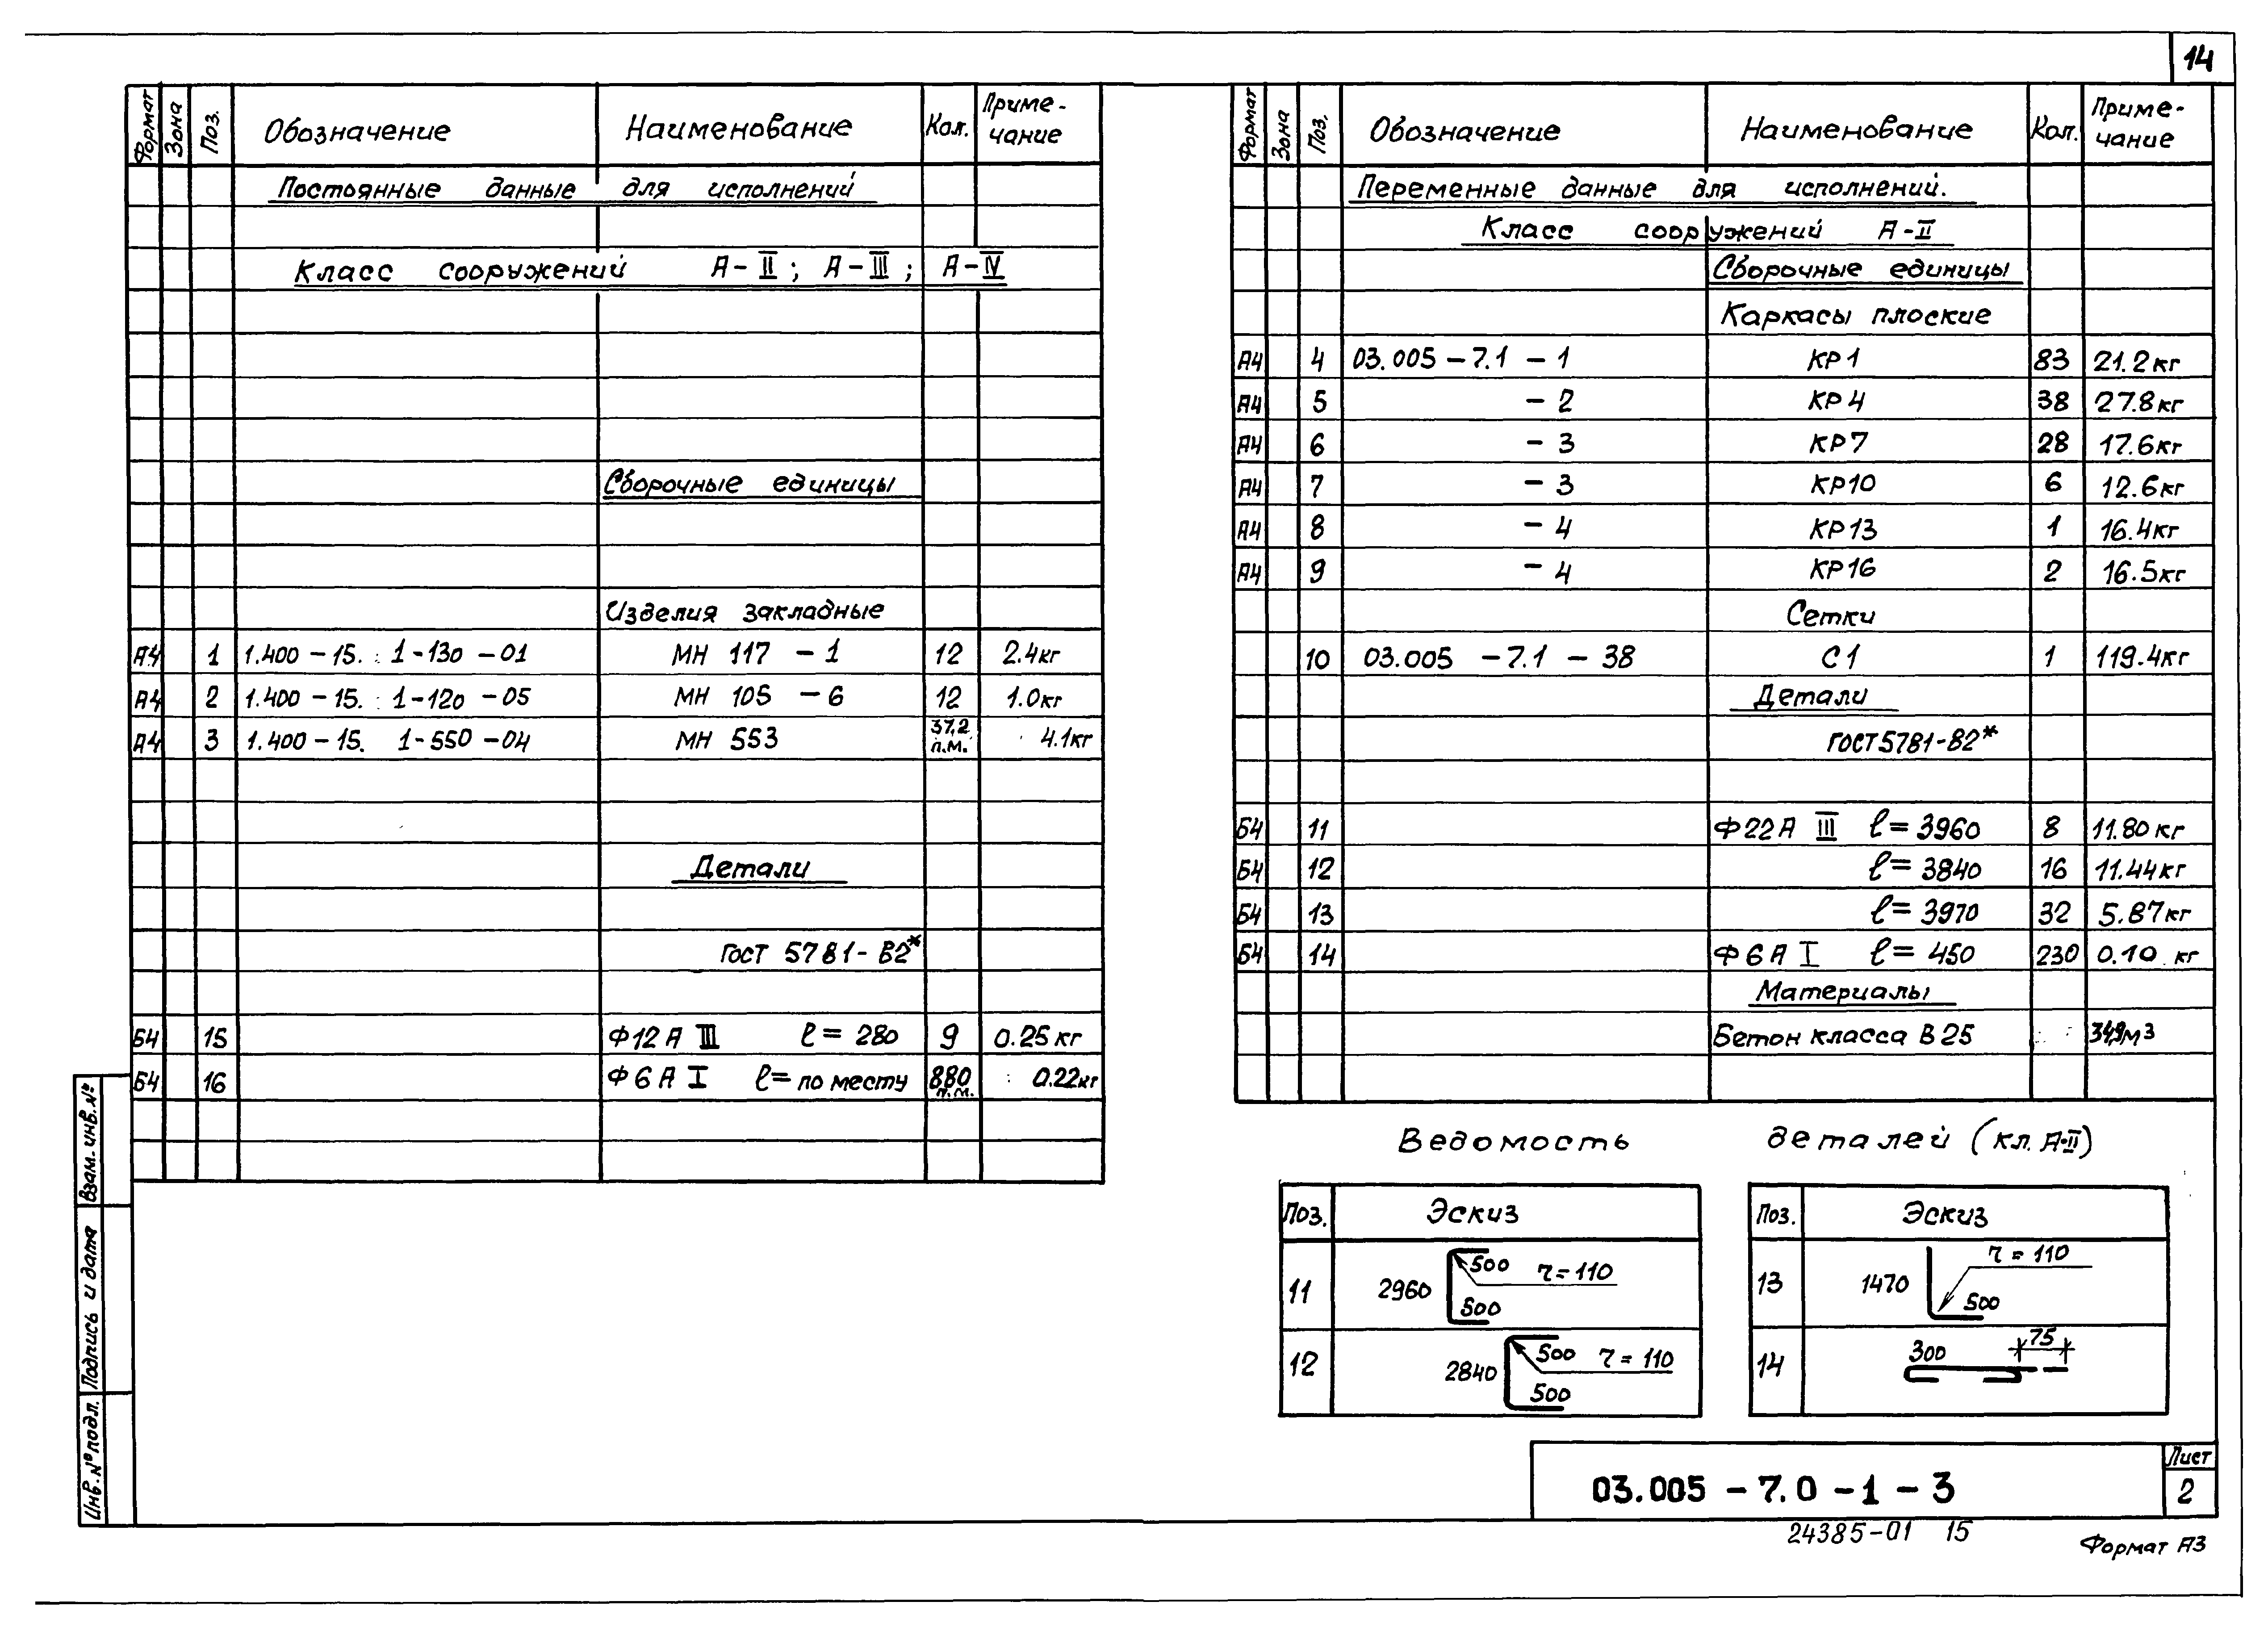 14
Формат Зона Поз. Обозначение Наименование Кол. Приме-чание
Постоянные данные для исполнений
Класс сооружений А-II; А-III; А-IV
Сборочные единицы
Изделия закладные
А4 1 1.400-15. 1-130-01 МН 117-1 12 2.4кг
А4 2 1.400-15. 1-120-05 МН 105-6 12 1.0кг
А4 3 1.400-15. 1-550-04 МН 553 37,2 п.м. 4.1кг
Детали
Гост 5781-82*
Б4 15 Ф12А III ℓ=280 9 0.25кг
Б4 16 Ф6А I ℓ=по месту 880 п.м. 0.22кг
Формат Зона Поз. Обозначение Наименование Кол. Приме-чание
Переменные данные для исполнений.
Класс сооружений А-II
Сборочные единицы
Каркасы плоские
А4 4 03.005-7.1-1 КР1 83 21.2кг
А4 5 -2 КР4 38 27.8кг
А4 6 -3 КР7 28 17.6кг
А4 7 -3 КР10 6 12.6кг
А4 8 -4 КР13 1 16.4кг
А4 9 -4 КР16 2 16.5кг
Сетки
10 03.005-7.1-38 С1 1 119.4кг
Детали
ГОСТ5781-82*
Б4 11 Ф22А III ℓ=3960 8 11.80кг
Б4 12 ℓ=3840 16 11.44кг
Б4 13 ℓ=3970 32 5.87кг
Б4 14 Ф6А I ℓ=450 230 0.10 кг
Материалы
Бетон класса В25 м3
Ведомость деталей (кл. А-II)
Поз. Эскиз
11 2960 500 r=110 500
12 2840 500 r=110 500
Поз. Эскиз
13 1470 r=110 500
14 300 75
03.005-7.0-1-3
Лист
2
24385-01 15
Формат А3
Инв.№подл. Подпись и дата Взам.инв.№